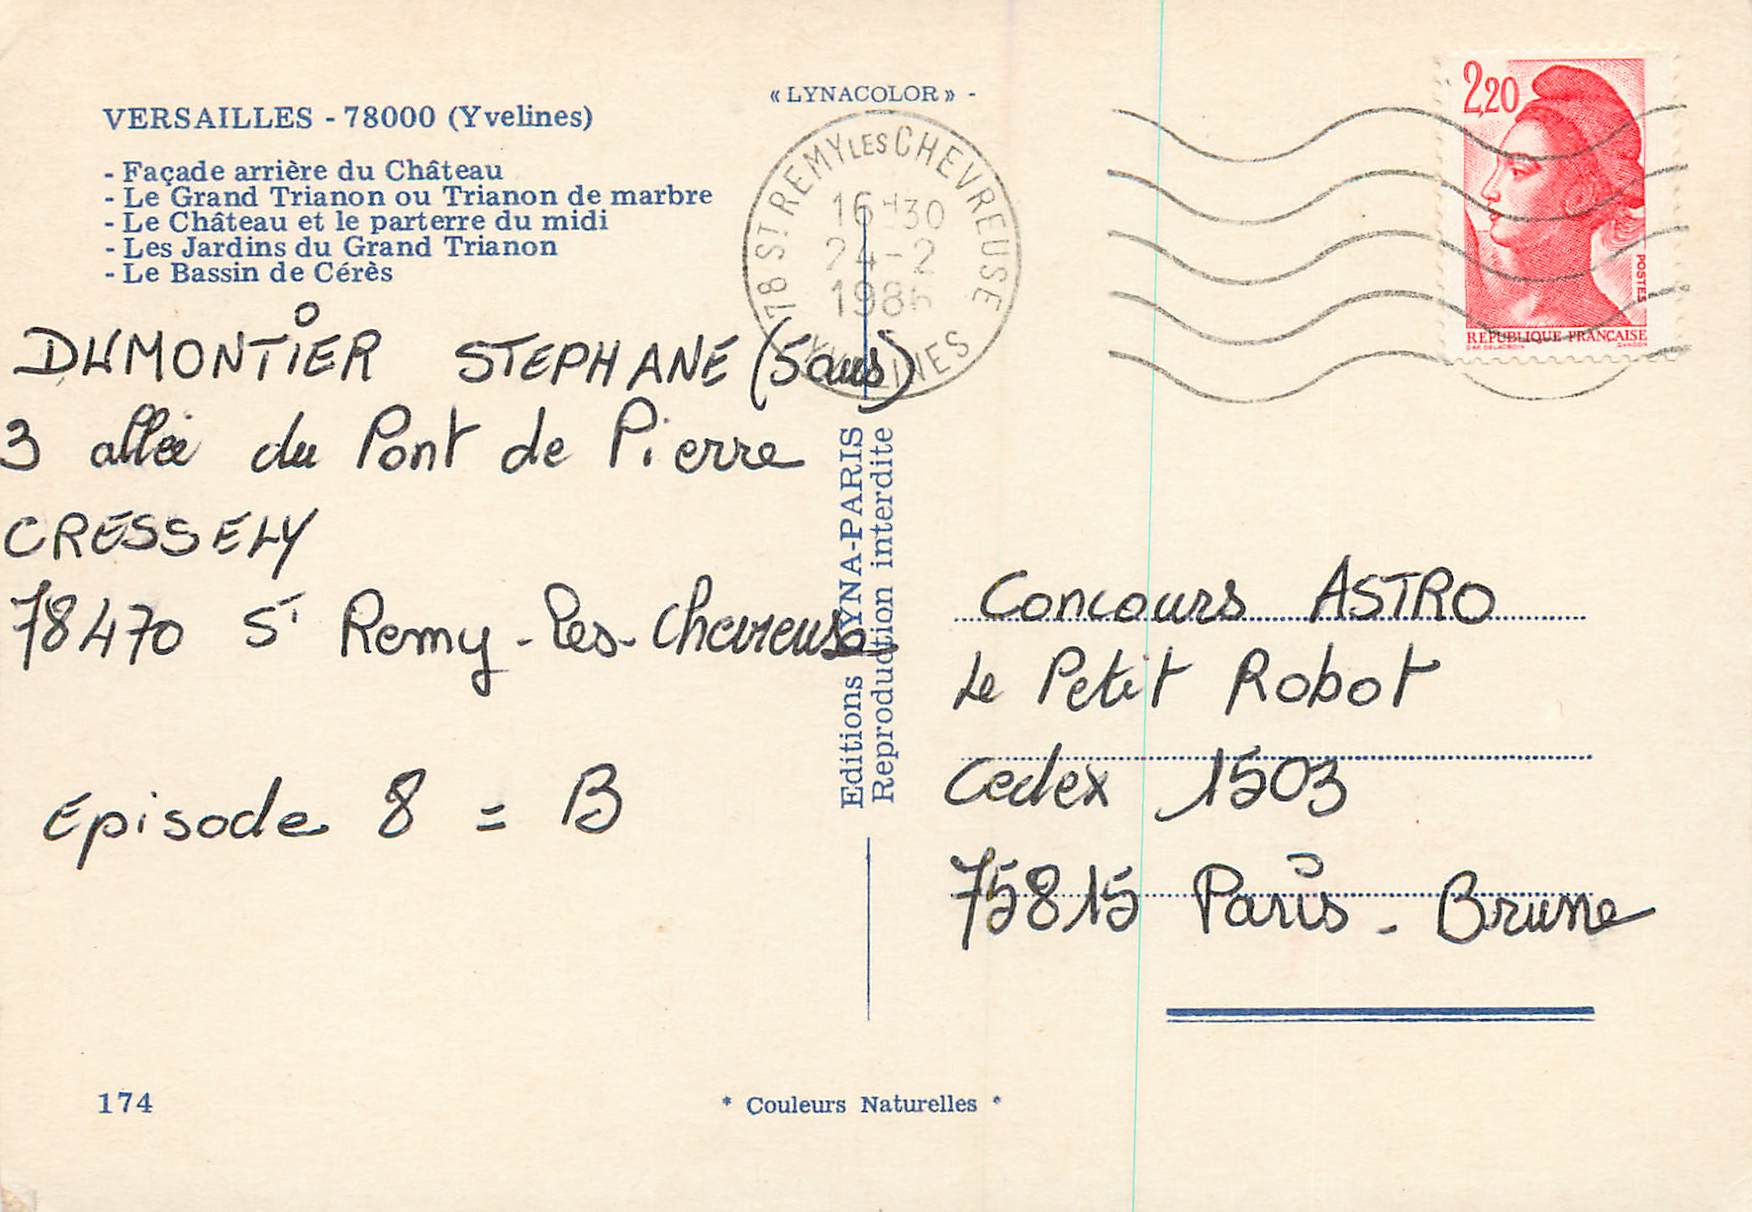 « LYNACOLOR » -
VERSAILLES - 78000 (Yvelines)
- Façade arrière du Château
- Le Grand Trianon ou Trianon de marbre
- Le Château et le parterre du midi
- Les Jardins du Grand Trianon
- Le Bassin de Cérès
78 ST REMY LES CHEVREUSE
16H30
24-2
1986
YVELINES
2,20
POSTES
REPUBLIQUE FRANÇAISE
DUMONTIER STEPHANE (5ans)
3 allée du Pont de Pierre
CRESSELY
78470 St Remy-les-Chevreuse
Episode 8 = B
Editions LYNA-PARIS
Reproduction interdite
Concours ASTRO
Le Petit Robot
Cedex 1503
75815 Paris - Brune
174
* Couleurs Naturelles *